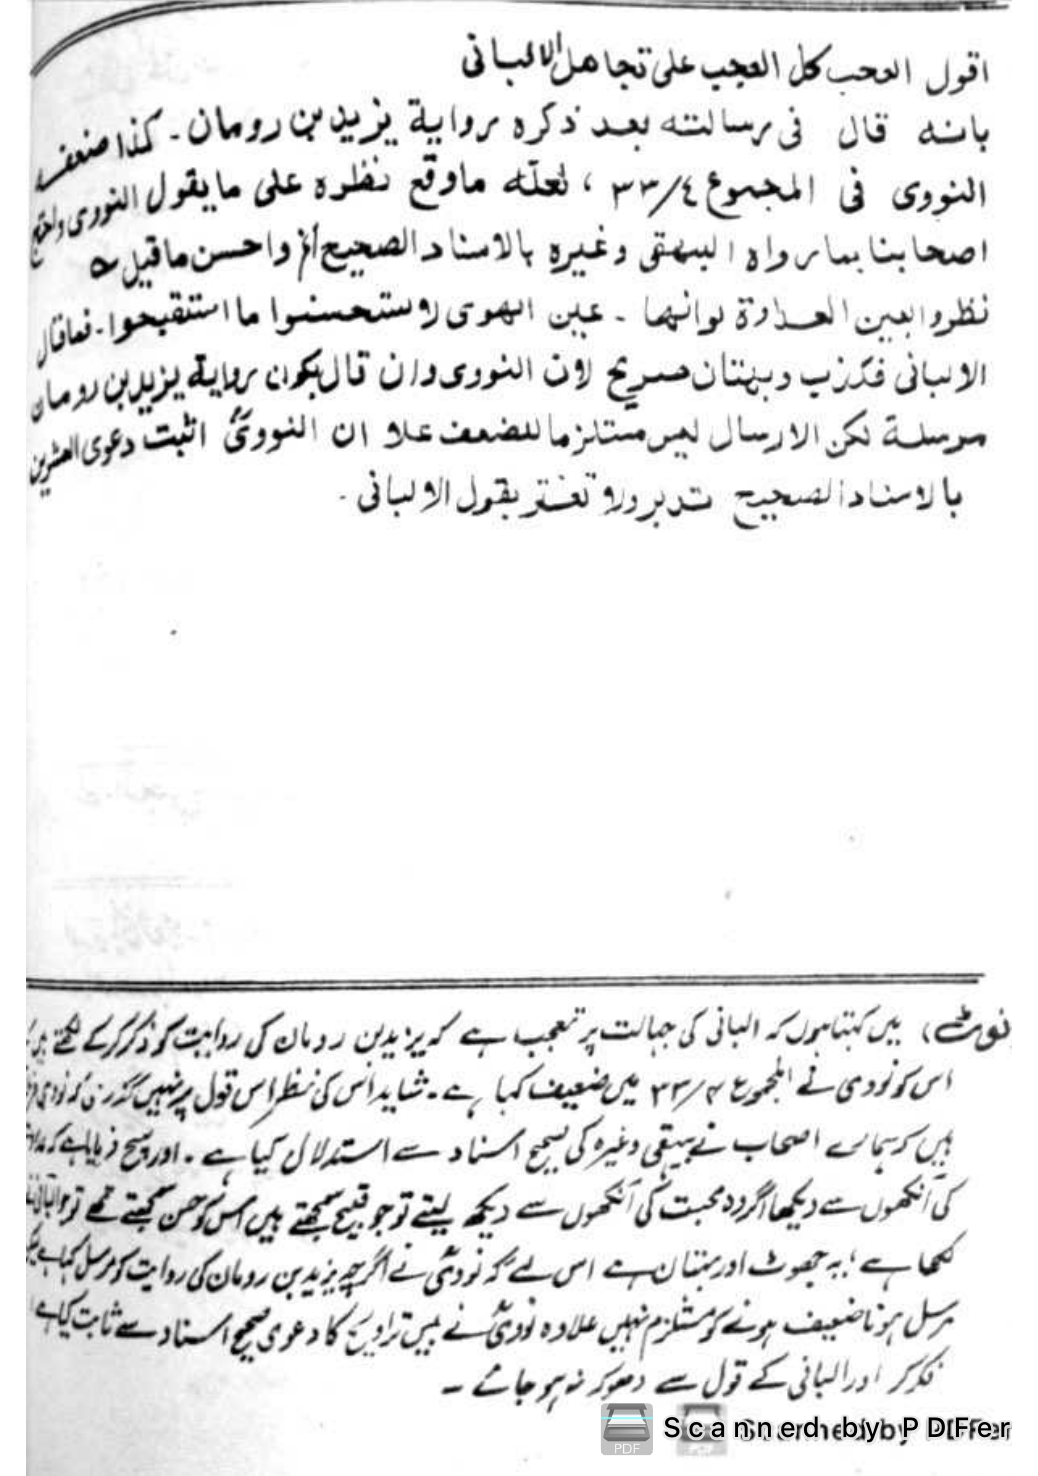 اقول العجب كل العجب على تجاهل الالبانى
بانه قال فى رسالته بعد ذكره رواية يزيد بن رومان ۔ كذا ضعفه
النووى فى المجموع ٤/٣٣ ، لعله ماوقع نظره على مايقول النووى واحتج
اصحابنا بما رواه البيهقى وغيره بالاسناد الصحيح الخ واحسن ماقيل ے
نظروا بعين العداوة لوانها ۔ عين الهوى لاستحسنوا ما استقبحوا ۔ فماقال
الالبانى فكذب وبهتان صريح لان النووى وان قال بكون رواية يزيد بن رومان
مرسلة لكن الارسال ليس مستلزما للضعف علا ان النووىؒ اثبت دعوى العشرين
بالاسناد الصحيح تدبر ولا تغتر بقول الالبانى ۔
نوٹ) میں کہتا ہوں کہ البانی کی جہالت پر تعجب ہے کہ یزید بن رومان کی روایت کو ذکر کرکے لکھتے ہیں
اس کو نووی نے المجموع ۴/۳۳ میں ضعیف کہا ہے ۔ شاید اس کی نظر اس قول پر نہیں گذری کہ نووی
ہیں کہ ہمارے اصحاب نے بیہقی وغیرہ کی صحیح اسناد سے استدلال کیا ہے ۔ اور سچ فرمایا ہے کہ
کی آنکھوں سے دیکھا اگر وہ محبت کی آنکھوں سے دیکھ لیتے تو جو قبیح سمجھتے ہیں اس کو حسن سمجھتے تھے تو جو البانی
لکھا ہے ؛ یہ جھوٹ اور بہتان ہے اس لئے کہ نوویؒ نے اگرچہ یزید بن رومان کی روایت کو مرسل کہا ہے
مرسل ہونا ضعیف ہونے کو مستلزم نہیں علاوہ نوویؒ نے بیس تراویح کا دعوی صحیح اسناد سے ثابت کیا ہے
فکر کر اور البانی کے قول سے دھوکہ نہ ہو جائے ۔
Scanned by PDFer